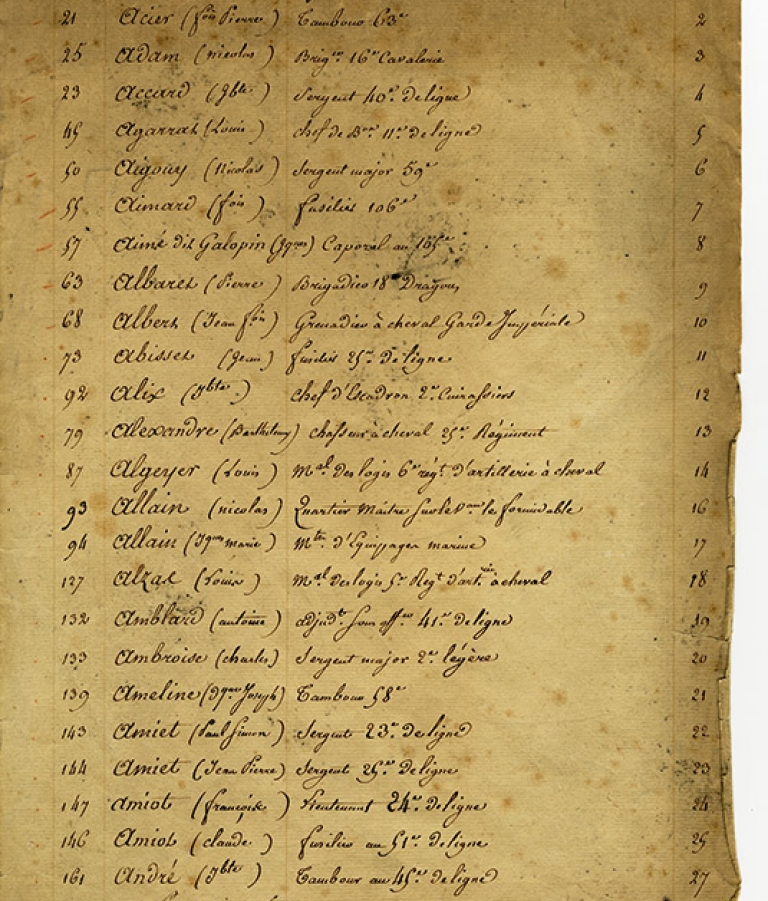 21 Acier (fois Pierre) Tambour 63e 2
25 Adam (nicolas) Brigier 16e Cavalerie 3
23 Accard (Jbte) Sergent 40e de ligne 4
45 Agarrat (Louis) chef de Bon 11e de ligne 5
50 Aigouy (Nicolas) Sergent major 59e 6
55 Aimard (fois) fusilier 106e 7
57 Aimé dit Galopin (Jques) Caporal au 105e 8
63 Albaret (Pierre) Brigadier 18e Dragons 9
68 Albert (Jean fois) Grenadier à cheval Garde Impériale 10
73 Abisset (Jean) fusilier 25e de ligne 11
92 Alix (Jbte) chef d'Escadron 2e Cuirassiers 12
79 Alexandre (Barthelemy) chasseur à cheval 25e Régiment 13
87 Algeyer (Louis) Mal des logis 6e régt d'artillerie à cheval 14
93 Allain (nicolas) Quartier Maitre sur le Vau le formidable 16
94 Allain (Jques marie) Mtre d'Equipages marine 17
127 Alzas (Louis) Mal des logis 5e Regt d'artrie à cheval 18
132 Amblard (antoine) adjudt sous offer 41e de ligne 19
133 Ambroise (charles) Sergent major 2e légère 20
139 Ameline (Dque Joseph) Tambour 58e 21
143 Amiet (Paul Simon) Sergent 23e de ligne 22
144 Amiet (Jean Pierre) Sergent 25e de ligne 23
147 amiot (françois) Lieutenant 24e de ligne 24
146 Amiot (claude) fusilier au 51e de ligne 25
161 André (Jbte) Tambour au 45e de ligne 27